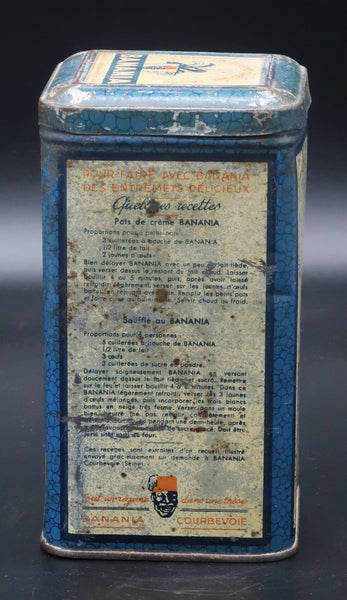 BANANIA
POUR FAIRE AVEC BANANIA
DES ENTREMETS DÉLICIEUX
Quelques recettes
Pots de crème BANANIA
Proportions pour 6 petits pots :
3 cuillerées à bouche de BANANIA
1/2 litre de lait
2 jaunes d'œufs
Bien délayer BANANIA avec un peu de lait tiède
puis verser dessus le restant du lait chaud. Laisser
bouillir 4 ou 5 minutes, puis, après avoir laissé
refroidir légèrement, verser sur les jaunes d'œufs
Remplir les petits pots
et faire cuire au bain-marie. Servir chaud ou froid.
Soufflé au BANANIA
Proportions pour 4 personnes :
3 cuillerées à bouche de BANANIA
1/2 litre de lait
3 œufs
3 cuillerées de sucre en poudre.
Délayer soigneusement BANANIA en versant
doucement dessus le lait chaud et sucré. Remettre
sur le feu et laisser bouillir 4 à 5 minutes. Dans ce
BANANIA légèrement refroidi, verser les 3 jaunes
d'œufs mélangés, puis incorporer les trois blancs
battus en neige très ferme. Verser dans un moule
bien beurré
pendant une demi-heure, après
de sucre glacé. Doit être
servi
du four.
Ces recettes sont extraites d'un recueil illustré
envoyé gracieusement sur demande à BANANIA
Courbevoie (Seine).
tout un régime dans une tasse
BANANIA COURBEVOIE